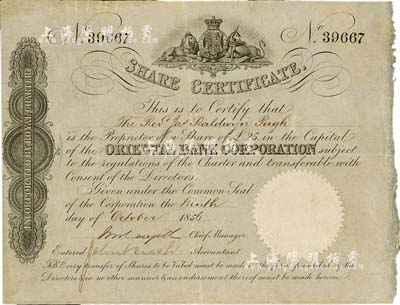 上海泓盛拍賣
No. 39667 No. 39667
SHARE CERTIFICATE.
This is to Certify that
The Revd. Baldwin Pugh
is the Proprietor of a Share of £25 in the Capital
of the ORIENTAL BANK CORPORATION subject
to the regulations of the Charter and transferable with
Consent of the Directors.
Given under the Common Seal
of the Corporation the Ninth
day of October 1856
Chief Manager.
Entered Accountant
N.B. Every transfer of Shares to be Valid must be made in the form prescribed by the
Directors, in no other manner & an endorsement thereof must be made hereon.
INCORPORATED BY ROYAL CHARTER